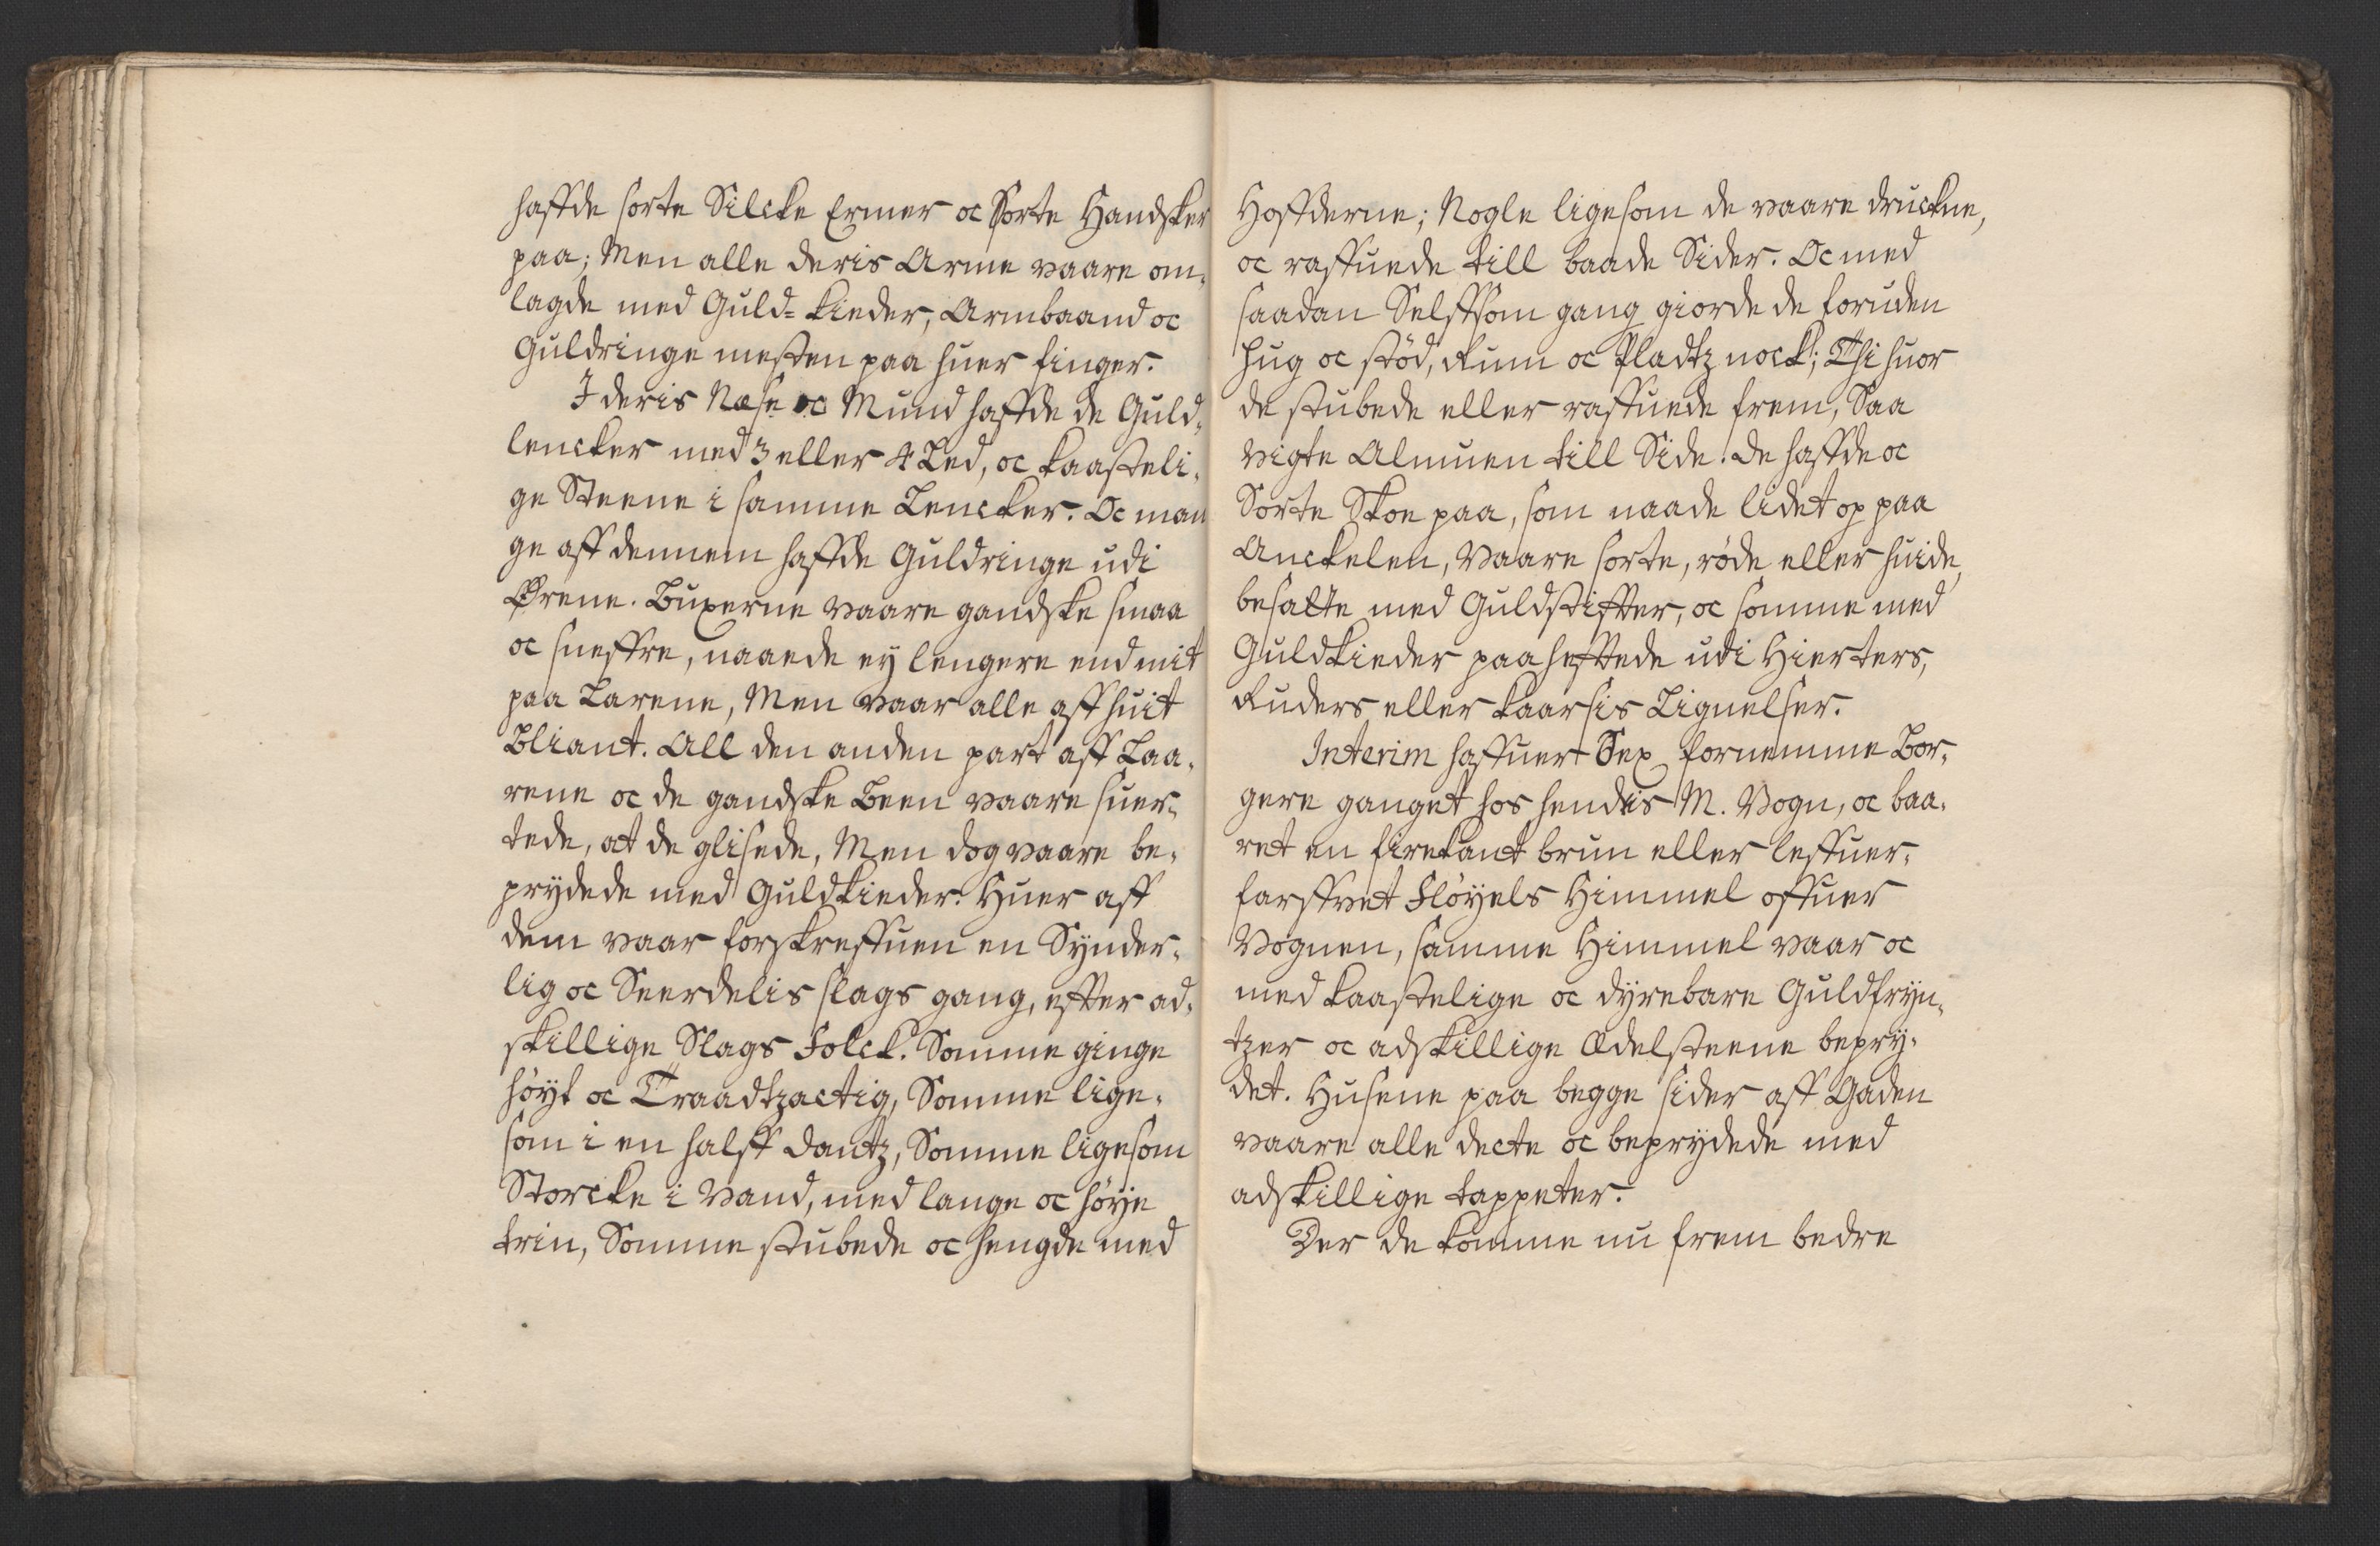 haffde sorte Silcke Ermer oc Sorte Handsker
paa; Men alle deris Arme vaare om-
lagde med Guld-kieder, Armbaand oc
Guldringe mesten paa huer finger.
I deris Næse oc Mund haffde de Guld-
lencker med 3 eller 4 Led, oc kaasteli-
ge Steene i samme Lencker. Oc man
ge aff dennem haffde Guldringe udi
Ørene. Buxerne vaare gandske smaa
oc sneffre, naaede ey lengere end mit
paa Larene, Men vaar alle aff huit
Bliant. All den anden part aff Laa-
rene oc de gandske Been vaare suer-
tede, at de glisede, Men dog vaare be-
prydede med Guldkieder. Huer aff
dem vaar forskreffuen en Synder-
lig oc Seerdelis slags gang, effter ad-
skillige Slags Folck. Somme ginge
höyt oc Traadtzactig, Somme lige-
som i en halff Dantz, Somme ligesom
Storcke i Vand, med lange oc höye
trin, Somme stubede oc hengde med
Hoffderne; Nogle ligesom de vaare druckne,
oc raffuede till baade Sider. Oc med
saadan Selffsom gang giorde de foruden
hug oc stöd, Rum oc Pladtz nock; Thi huor
de stubede eller raffuede frem, Saa
vigte Almuen till Side. De haffde oc
Sorte Skoe paa, som naade lidet op paa
Anckelen, Vaare sorte, röde eller huide,
besatte med Guldstiffter, oc somme med
Guldkieder paaheffttede udi Hierters,
Ruders eller kaarsis Lignelser.
Interim haffuer Sex fornemme Bor-
gere ganget hos hendis M. Vogn, oc baa-
ret en firekant brun eller leffuer-
farffvet Flöyels Himmel offuer
Vognen, samme Himmel vaar oc
med kaastelige oc dyrebare Guldfryn-
tzer oc adskillige Ædelsteene bepry-
det. Husene paa begge sider aff Gaden
vaare alle decte oc beprydede med
adskillige tappeter.
Der de komme nu frem bedre